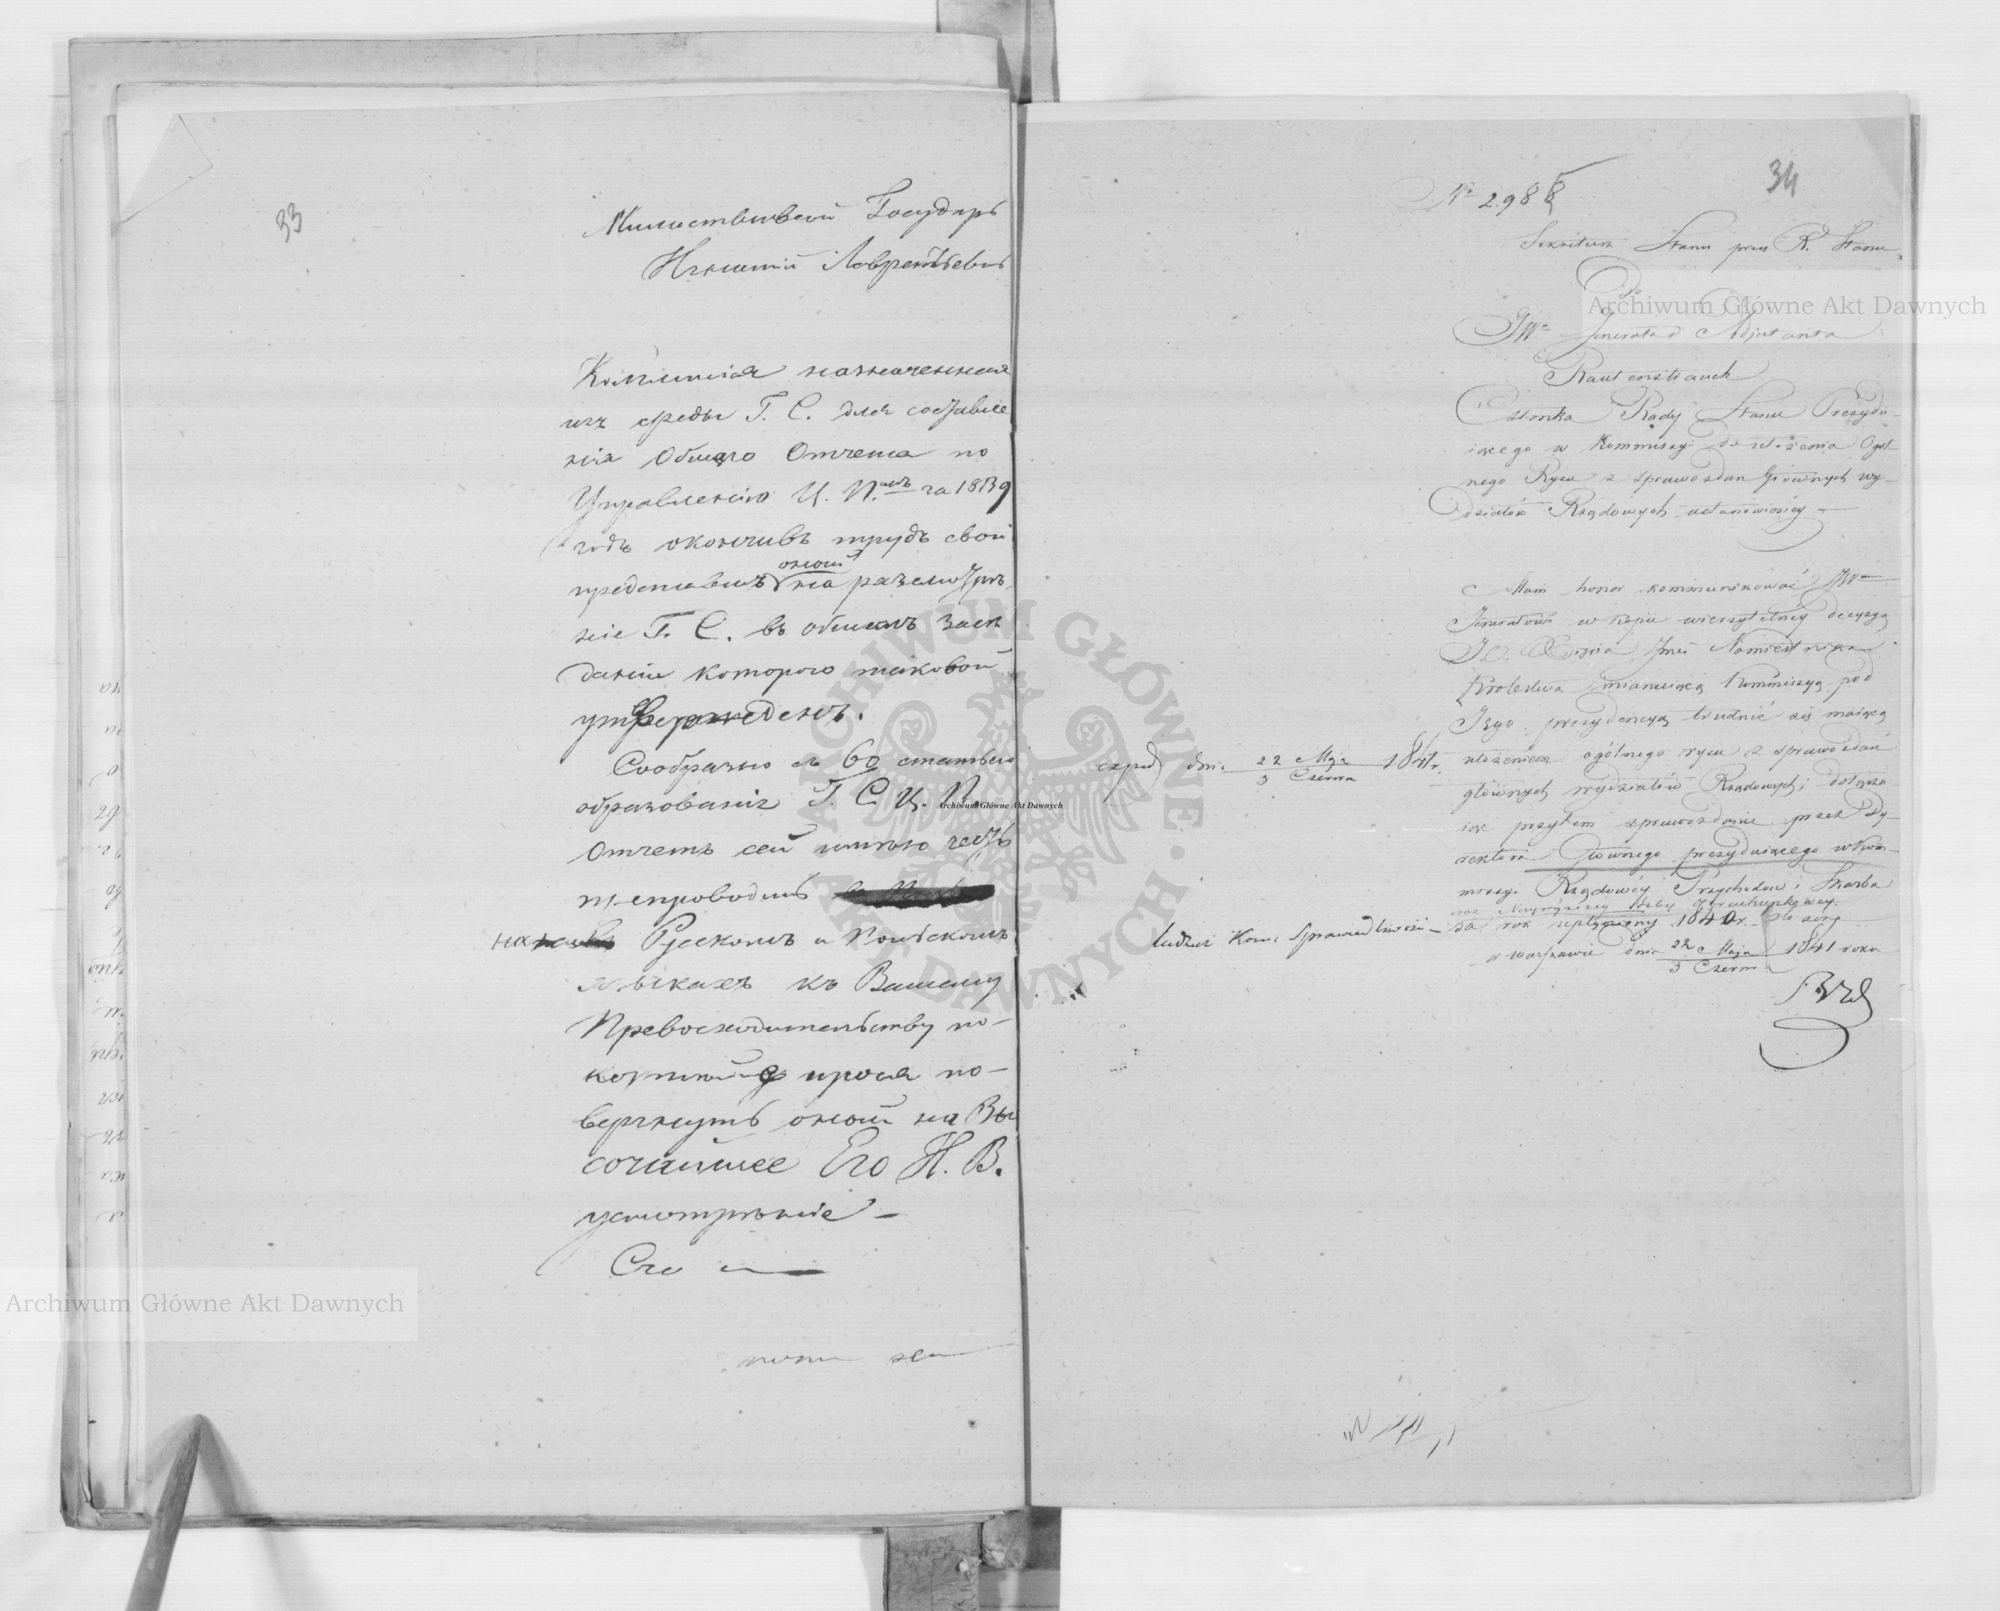 33
Милостивый Государь
Игнатий Лаврентьевич
Коммисия назначенная
изъ среды Г. С. для составле
нія Общаго Отчета по
Управленію Ц. П.имъ за 1839
годъ окончивъ трудъ свой
оный
представила на разсмотрѣ
ніе Г. С. въ общемъ Засѣ
даніи котораго таковой
утвержденъ.
Сообразно съ 60 статьею
образованія Г. С. Ц. П.
Отчетъ сей имѣю честь
препроводить
на Русскомъ и Польскомъ
языкахъ къ Вашему
Превосходительству по-
корнѣйше прося по-
вергнуть оный на Вы
сочайшее Его И. В.
усмотрѣніе –
Archiwum Główne Akt Dawnych
34
No 2988
Sekretarz Stanu przy R. Stanu
Do
JWo Jenerała Adjutanta
Rautenstrauch
Członka Rady Stanu Prezydu-
iącego w Kommissyi do ułożenia Ogól-
nego Rysu z sprawozdań Głównych wy-
działów Rządowych ustanowioney –
Mam honor kommunikować JW
Jenerałowi w kopii wierzytelney decyzyą
J. O. Xięcia Jmci Namiestnika
Królestwa mianuiącą Kommissyą pod
Jego prezydencyą trudnić się maiącą
exped dnia 22 Maja / 3 Czerwca 1841 r.
ułożeniem ogólnego rysu z sprawozdań
głównych wydziałów Rządowych i dołącza
iąc przytem sprawozdanie przez Dy-
rektora Głównego prezyduiącego w Kom-
missyi Rządowey Przychodów i Skarbu
oraz Naywyższey Izby Obrachunkowey
za rok upłyniony 1840 r.
tudzież Kom: Sprawiedliwości –
w Warszawie dnia 22 Maja / 3 Czerwca 1841 roku
Archiwum Główne Akt Dawnych
Archiwum Główne Akt Dawnych
ARCHIWUM GŁÓWNE · AKT DAWNYCH ·